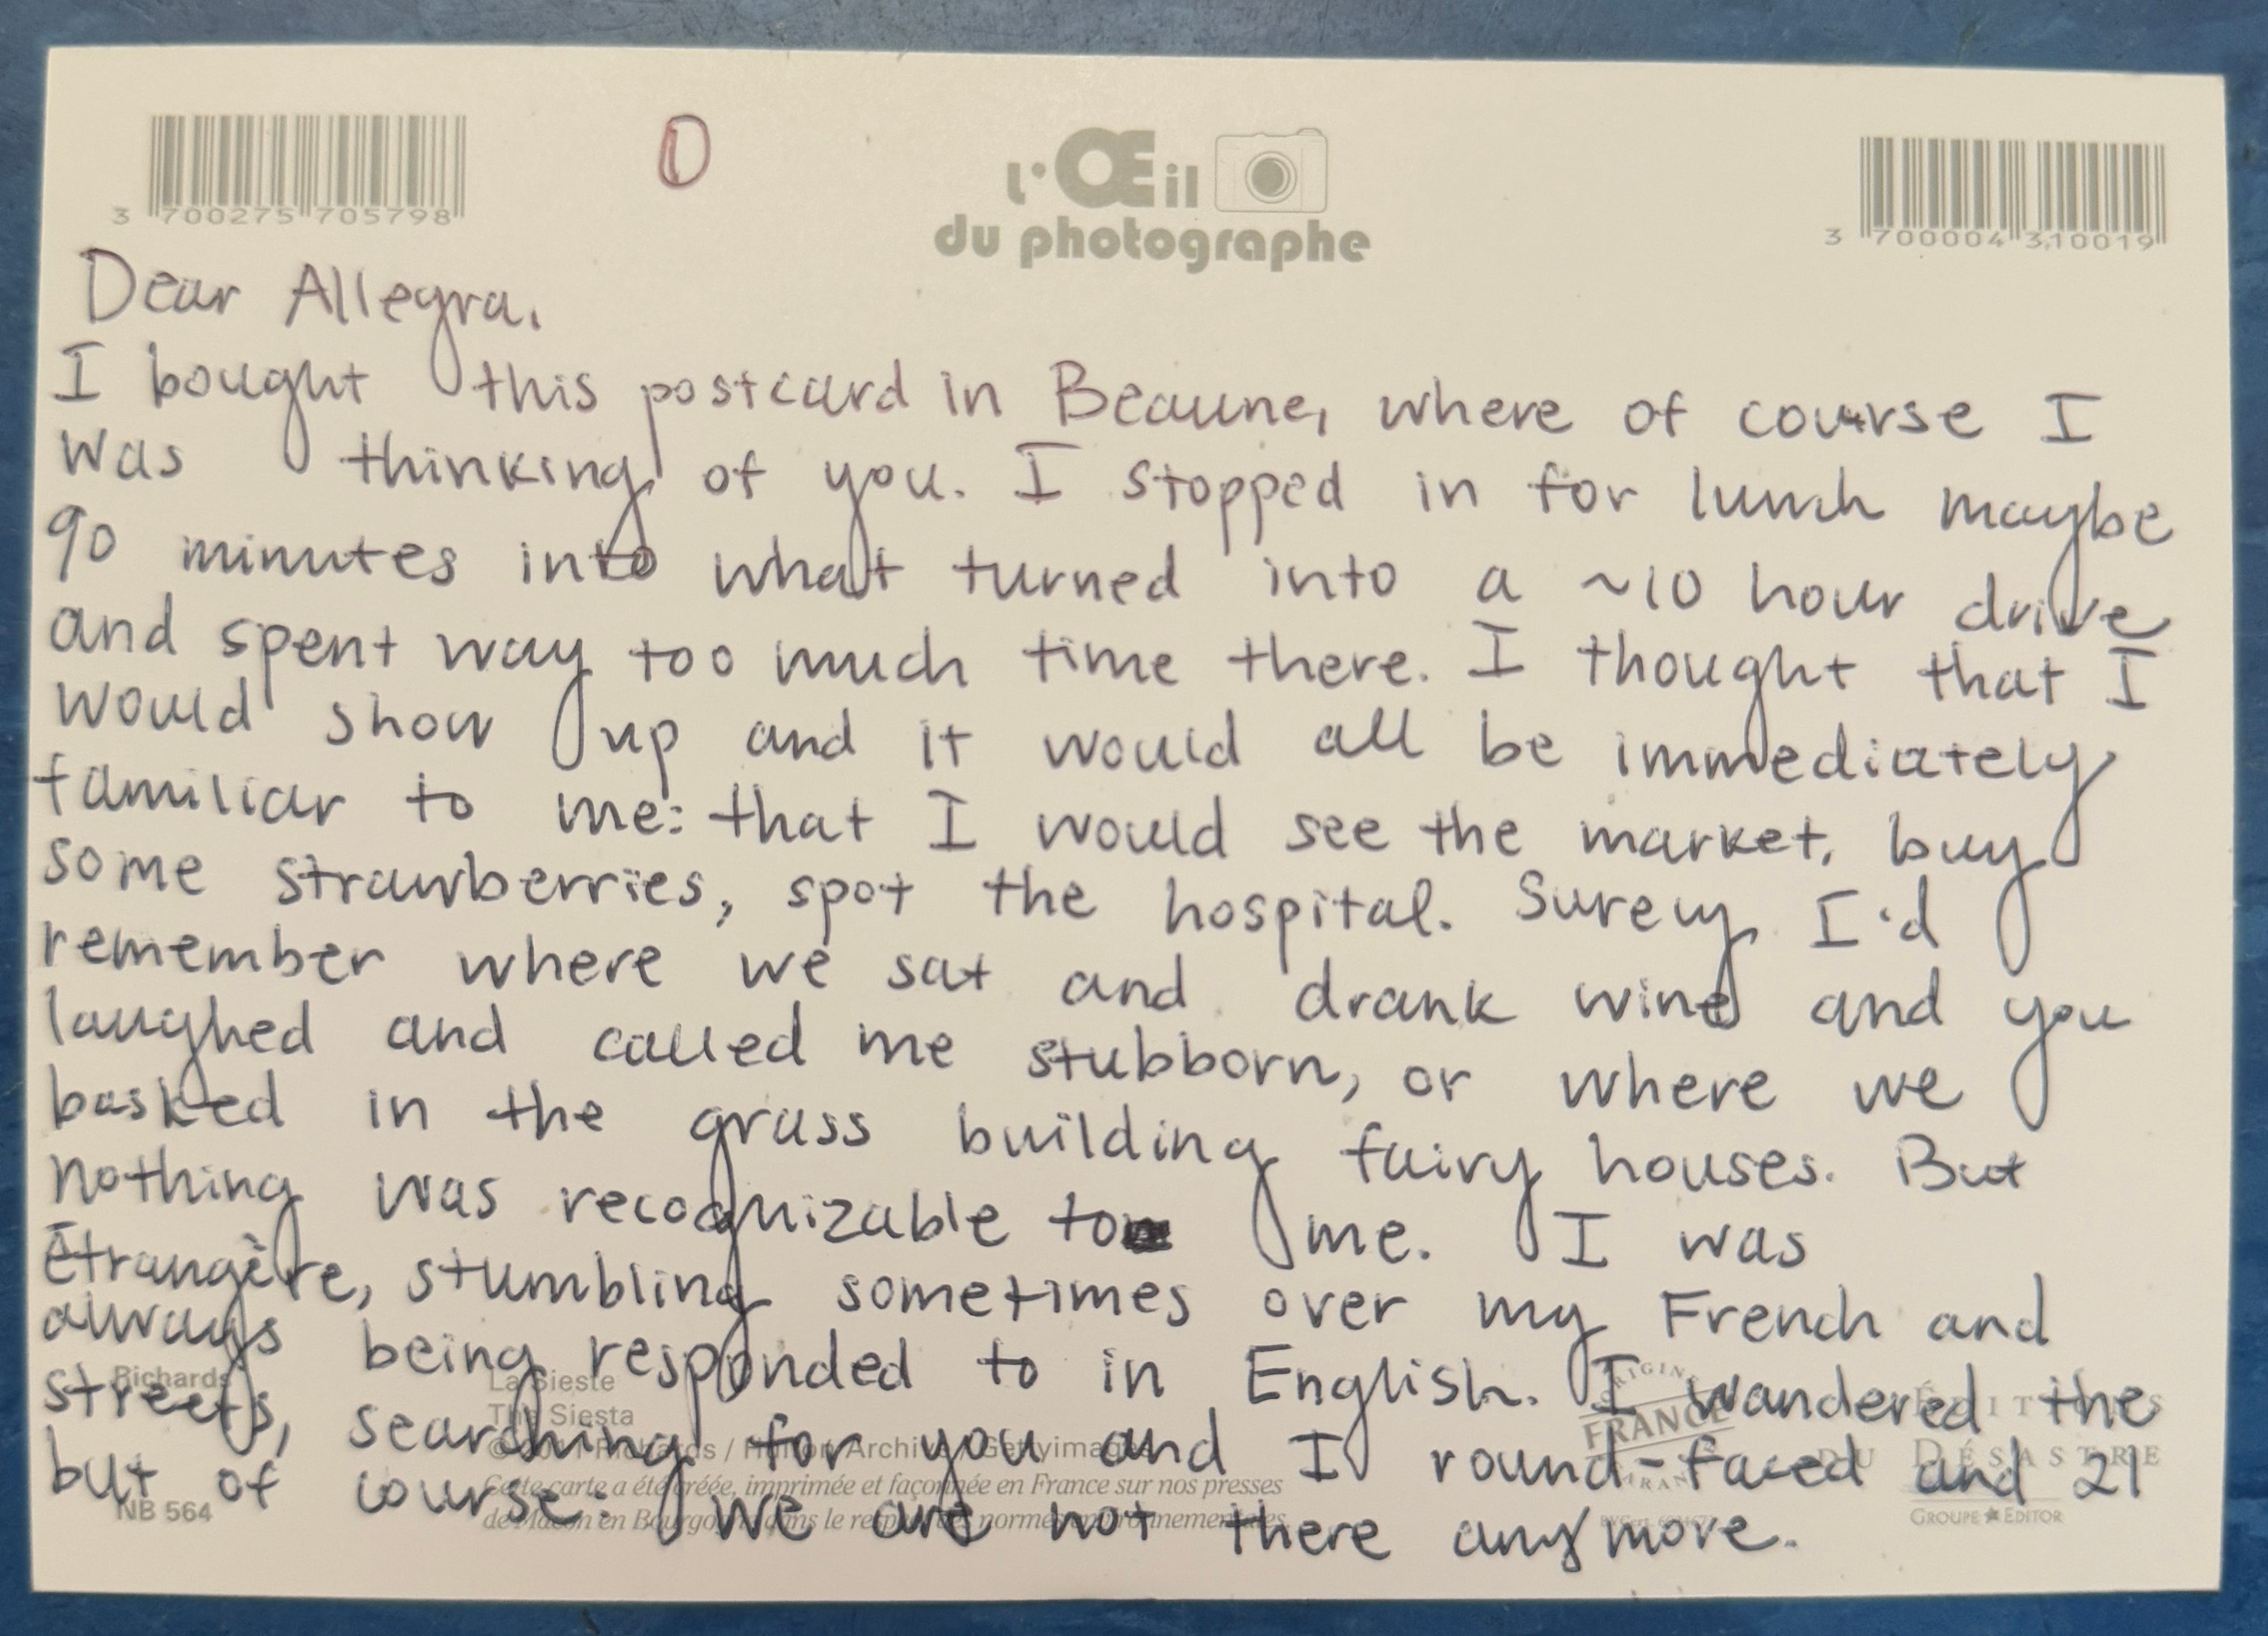 0
l'Œil
du photographe
3 700275 705798
3 700004 310019
Dear Allegra,
I bought this postcard in Beaune, where of course I
was thinking of you. I stopped in for lunch maybe
90 minutes into what turned into a ~10 hour drive
and spent way too much time there. I thought that I
would show up and it would all be immediately
familiar to me: that I would see the market, buy
some strawberries, spot the hospital. Surely I'd
remember where we sat and drank wine and you
laughed and called me stubborn, or where we
basked in the grass building fairy houses. But
nothing was recognizable to me. I was
Étrangère, stumbling sometimes over my French and
always being responded to in English. I wandered the
streets, searching for you and I round-faced and 21
but of course: we are not there anymore.
Richards
La Sieste
The Siesta
Richards / Archive / Gettyimages
Cette carte a été créée, imprimée et façonnée en France sur nos presses
de Mâcon en Bourgogne dans le respect des normes environnementales
NB 564
ORIGINE
FRANCE
ÉDITIONS
DU DÉSASTRE
GROUPE EDITOR